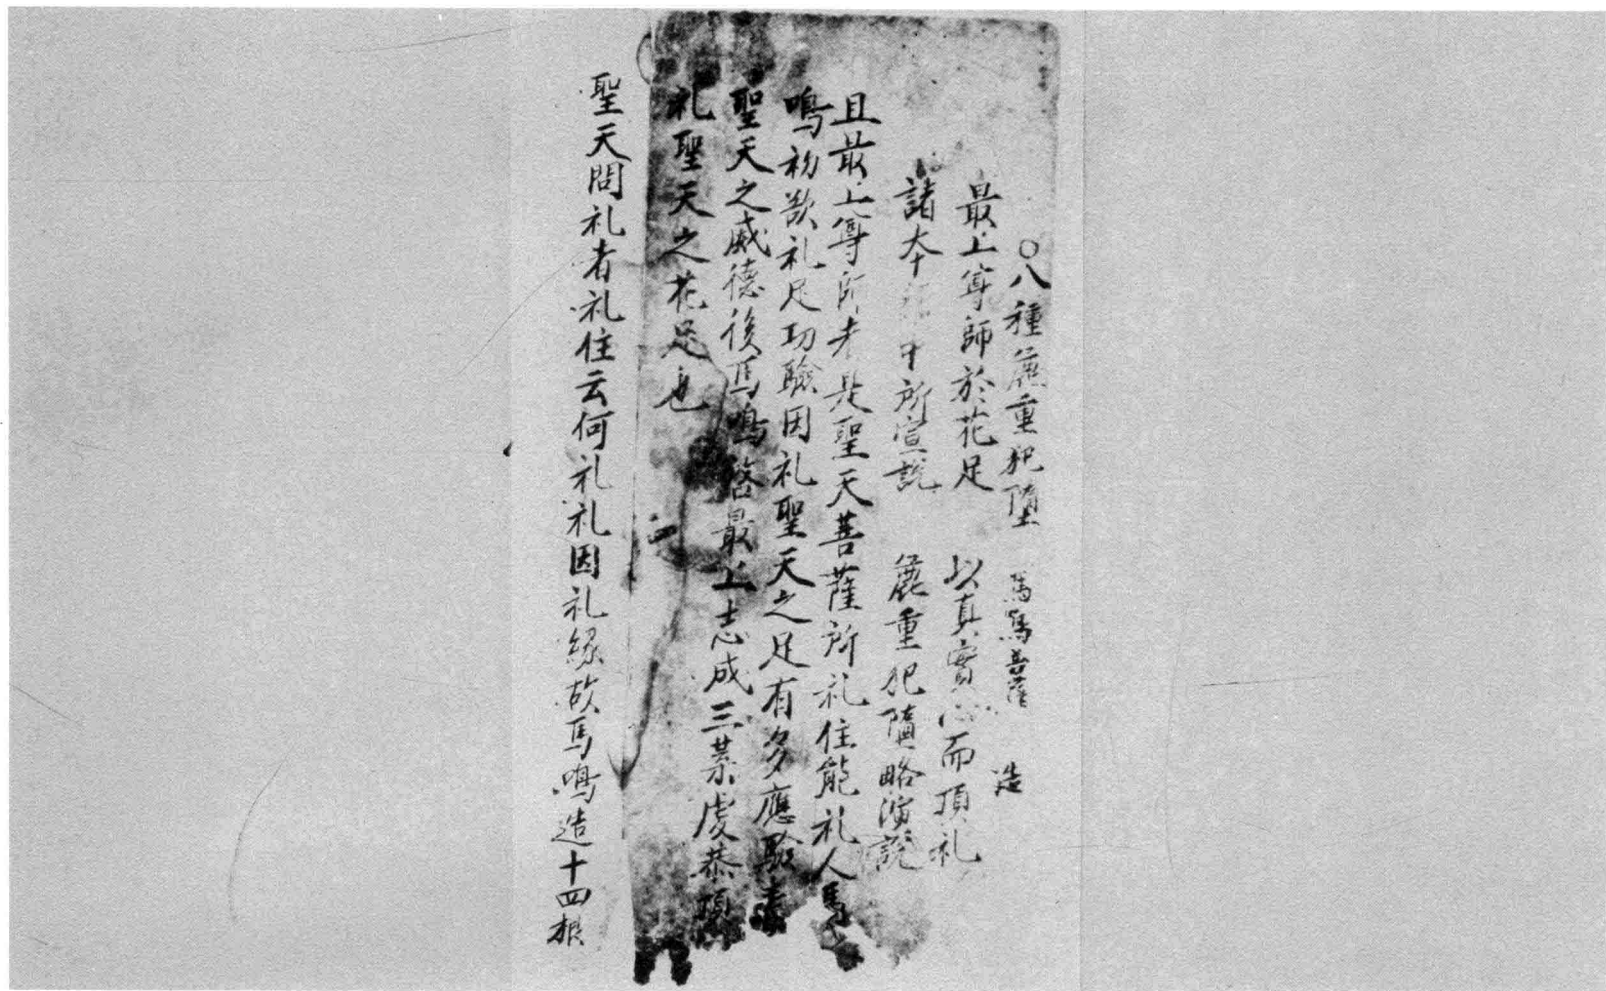 ○八種麁重犯墮 馬鳴菩薩 造
最上尊師於花足 以真實心而頂礼
諸本 中所宣説 麁重犯墮略演説
且最上尊師者是聖天菩薩所礼住能礼人馬
鳴初欲礼足功驗因礼聖天之足有多應驗
聖天之威德後馬鳴啓最上志成三業虔恭頂
礼聖天之花足也
聖天問礼者礼住云何礼礼因礼緣故馬鳴造十四根